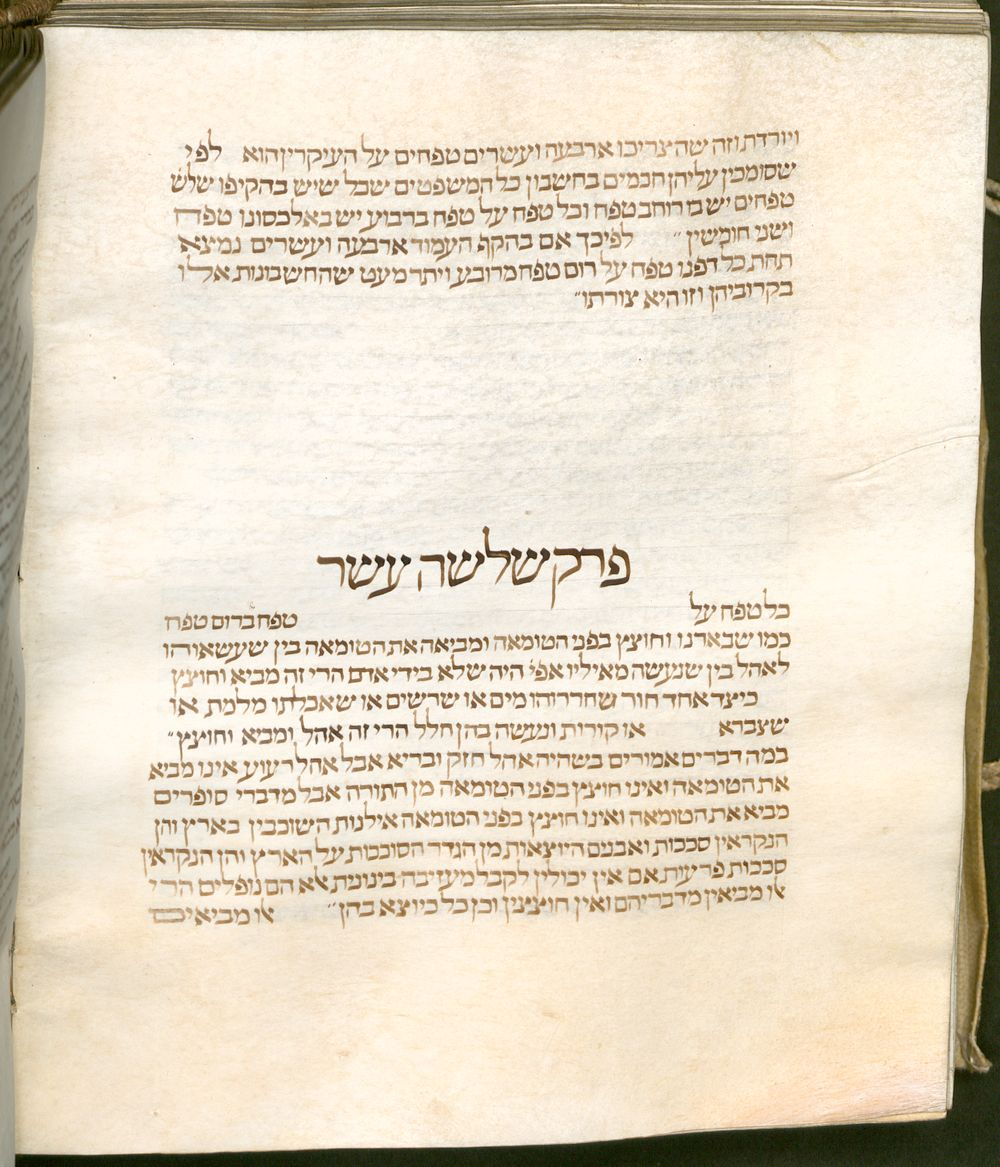 ויורדת וזה שהצריכו ארבעה ועשרים טפחים על העיקרין הוא לפי
שסומכין עליהן חכמים בחשבון כל המשפטים שכל שיש בהקיפו שלש
טפחים יש בו רוחב טפח וכל טפח על טפח ברבוע יש באלכסונו טפח
ושני חומשין״ לפיכך אם בהקף העמוד ארבעה ועשרים נמצא
תחת כל דפנו טפח על רום טפח מרובע ויתר מעט שהחשבונות אלו
בקרוביהן וזו היא צורתו״
פרק שלשה עשר
כל טפח על טפח ברום טפח
כמו שבארנו וחוצץ בפני הטומאה ומביא את הטומאה בין שעשאוהו
לאהל בין שנעשה מאיליו אפי׳ היה שלא בידי אדם הרי זה מביא וחוצץ
כיצד אחד חור שחררוהו מים או שרשים או שאכלתו מלמת או
שצברא או קורות ונעשה בהן חלל הרי זה אהל ומביא וחוצץ״
במה דברים אמורים בשהיה אהל חזק ובריא אבל אהל רעוע אינו מביא
את הטומאה ואינו חוצץ בפני הטומאה מן התורה אבל מדברי סופרים
מביא את הטומאה ואינו חוצץ בפני הטומאה אילנות השוככין בארץ והן
הנקראין סככות ואבנים היוצאות מן הגדר הסוככות על הארץ והן הנקראין
סככות פרעות אם אין יכולין לקבל מעזיבה בינונית אלא הם נופלים הרי
אלו מביאין מדבריהם ואין חוצצין וכן כל כיוצא בהן״ אלו מביאי